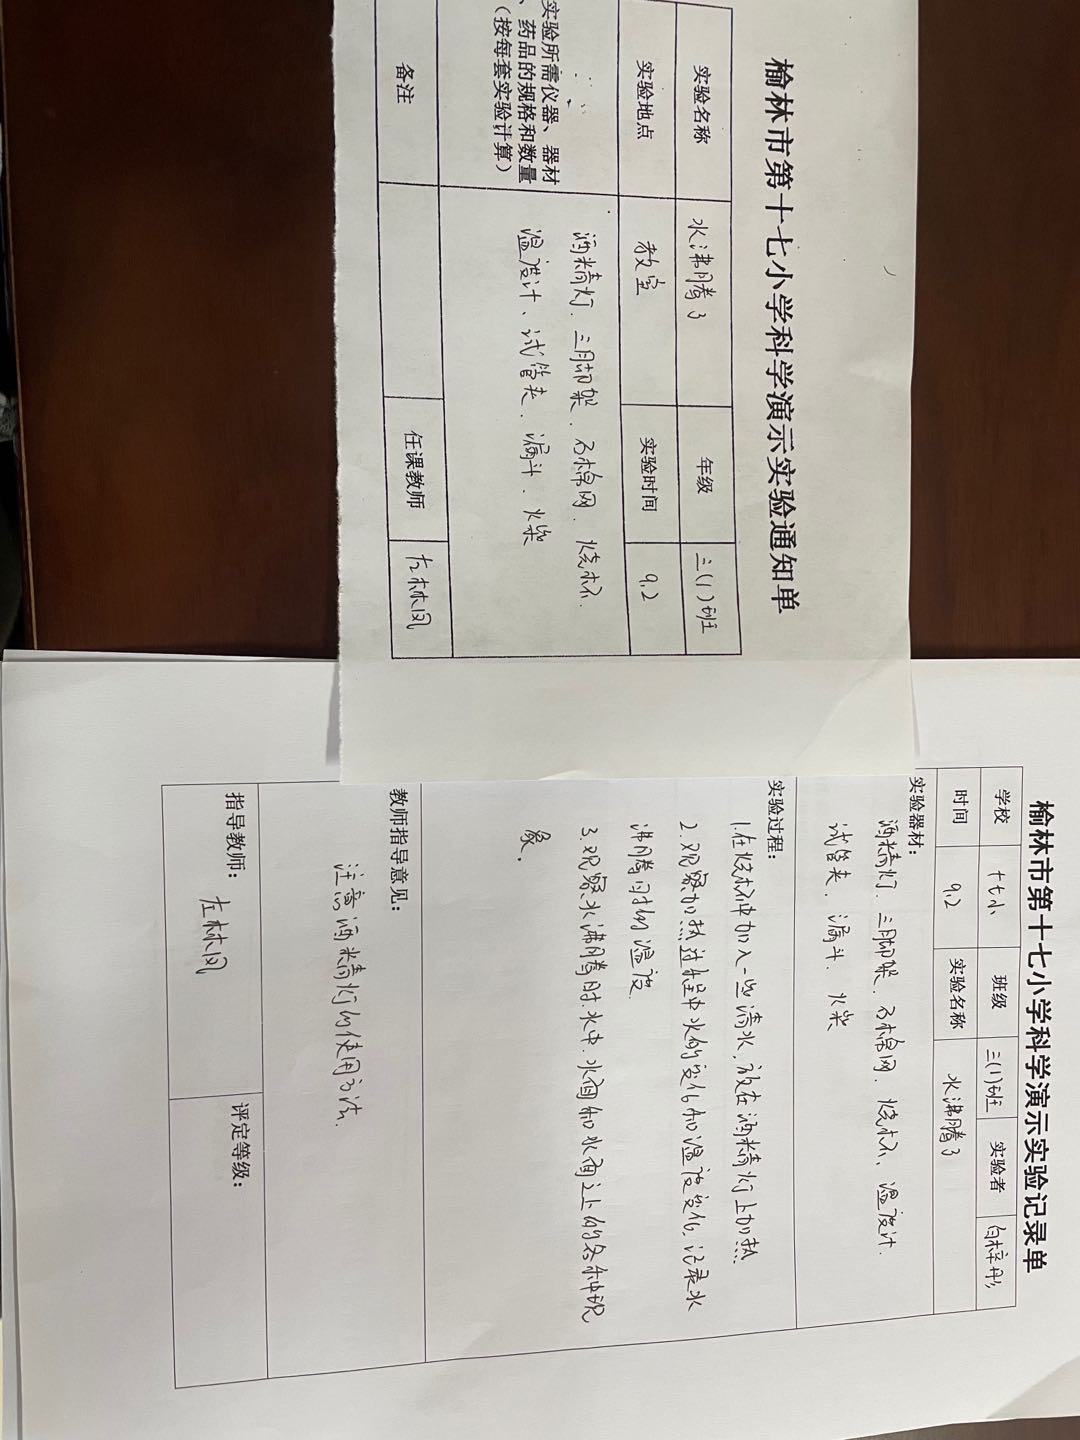 榆林市第十七小学科学演示实验通知单
实验名称 水沸腾了 年级 三(1)班
实验地点 教室 实验时间 9.2
实验所需仪器、器材
、药品的规格和数量
（按每套实验计算）
酒精灯、三脚架、石棉网、烧杯、
温度计、试管夹、漏斗、火柴
备注 任课教师 左林凤
榆林市第十七小学科学演示实验记录单
学校 十七小 班级 三(1)班 实验者 白梓彤
时间 9.2 实验名称 水沸腾了
实验器材：
酒精灯、三脚架、石棉网、烧杯、温度计、
试管夹、漏斗、火柴
实验过程：
1.在烧杯中加入一些清水,放在酒精灯上加热
2.观察加热过程中水的变化和温度变化,记录水
沸腾时的温度.
3.观察水沸腾时.水中.水面和水面之上的各种现
象.
教师指导意见：
注意酒精灯的使用方法.
指导教师： 左林凤 评定等级：